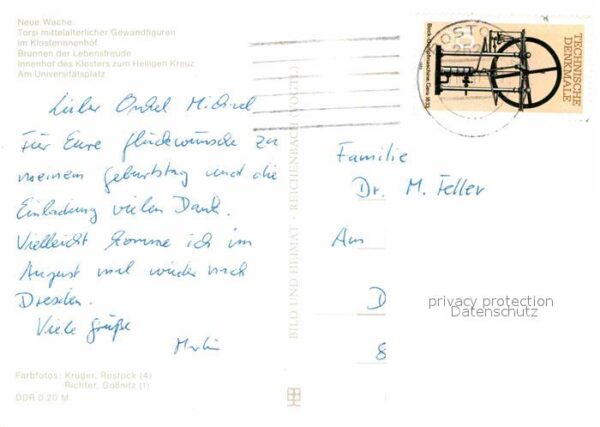 Neue Wache
Torsi mittelalterlicher Gewandfiguren
im Klosterinnenhof
Brunnen der Lebensfreude
Innenhof des Klosters zum Heiligen Kreuz
Am Universitätsplatz
Lieber Onkel Michael
Für Eure Glückwünsche zu
meinem Geburtstag und die
Einladung vielen Dank.
Vielleicht komme ich im
August mal wieder nach
Dresden.
Viele Grüße
Martin
Farbfotos: Krüger, Rostock (4)
Richter, Gößnitz (1)
DDR 0,20 M
BILD UND HEIMAT REICHENBACH (VOGTL)
OSTO
252
Bock-Dampfmaschine, Gera 1833
TECHNISCHE
DENKMALE
Familie
Dr. M. Feller
Am
D
8
privacy protection
Datenschutz